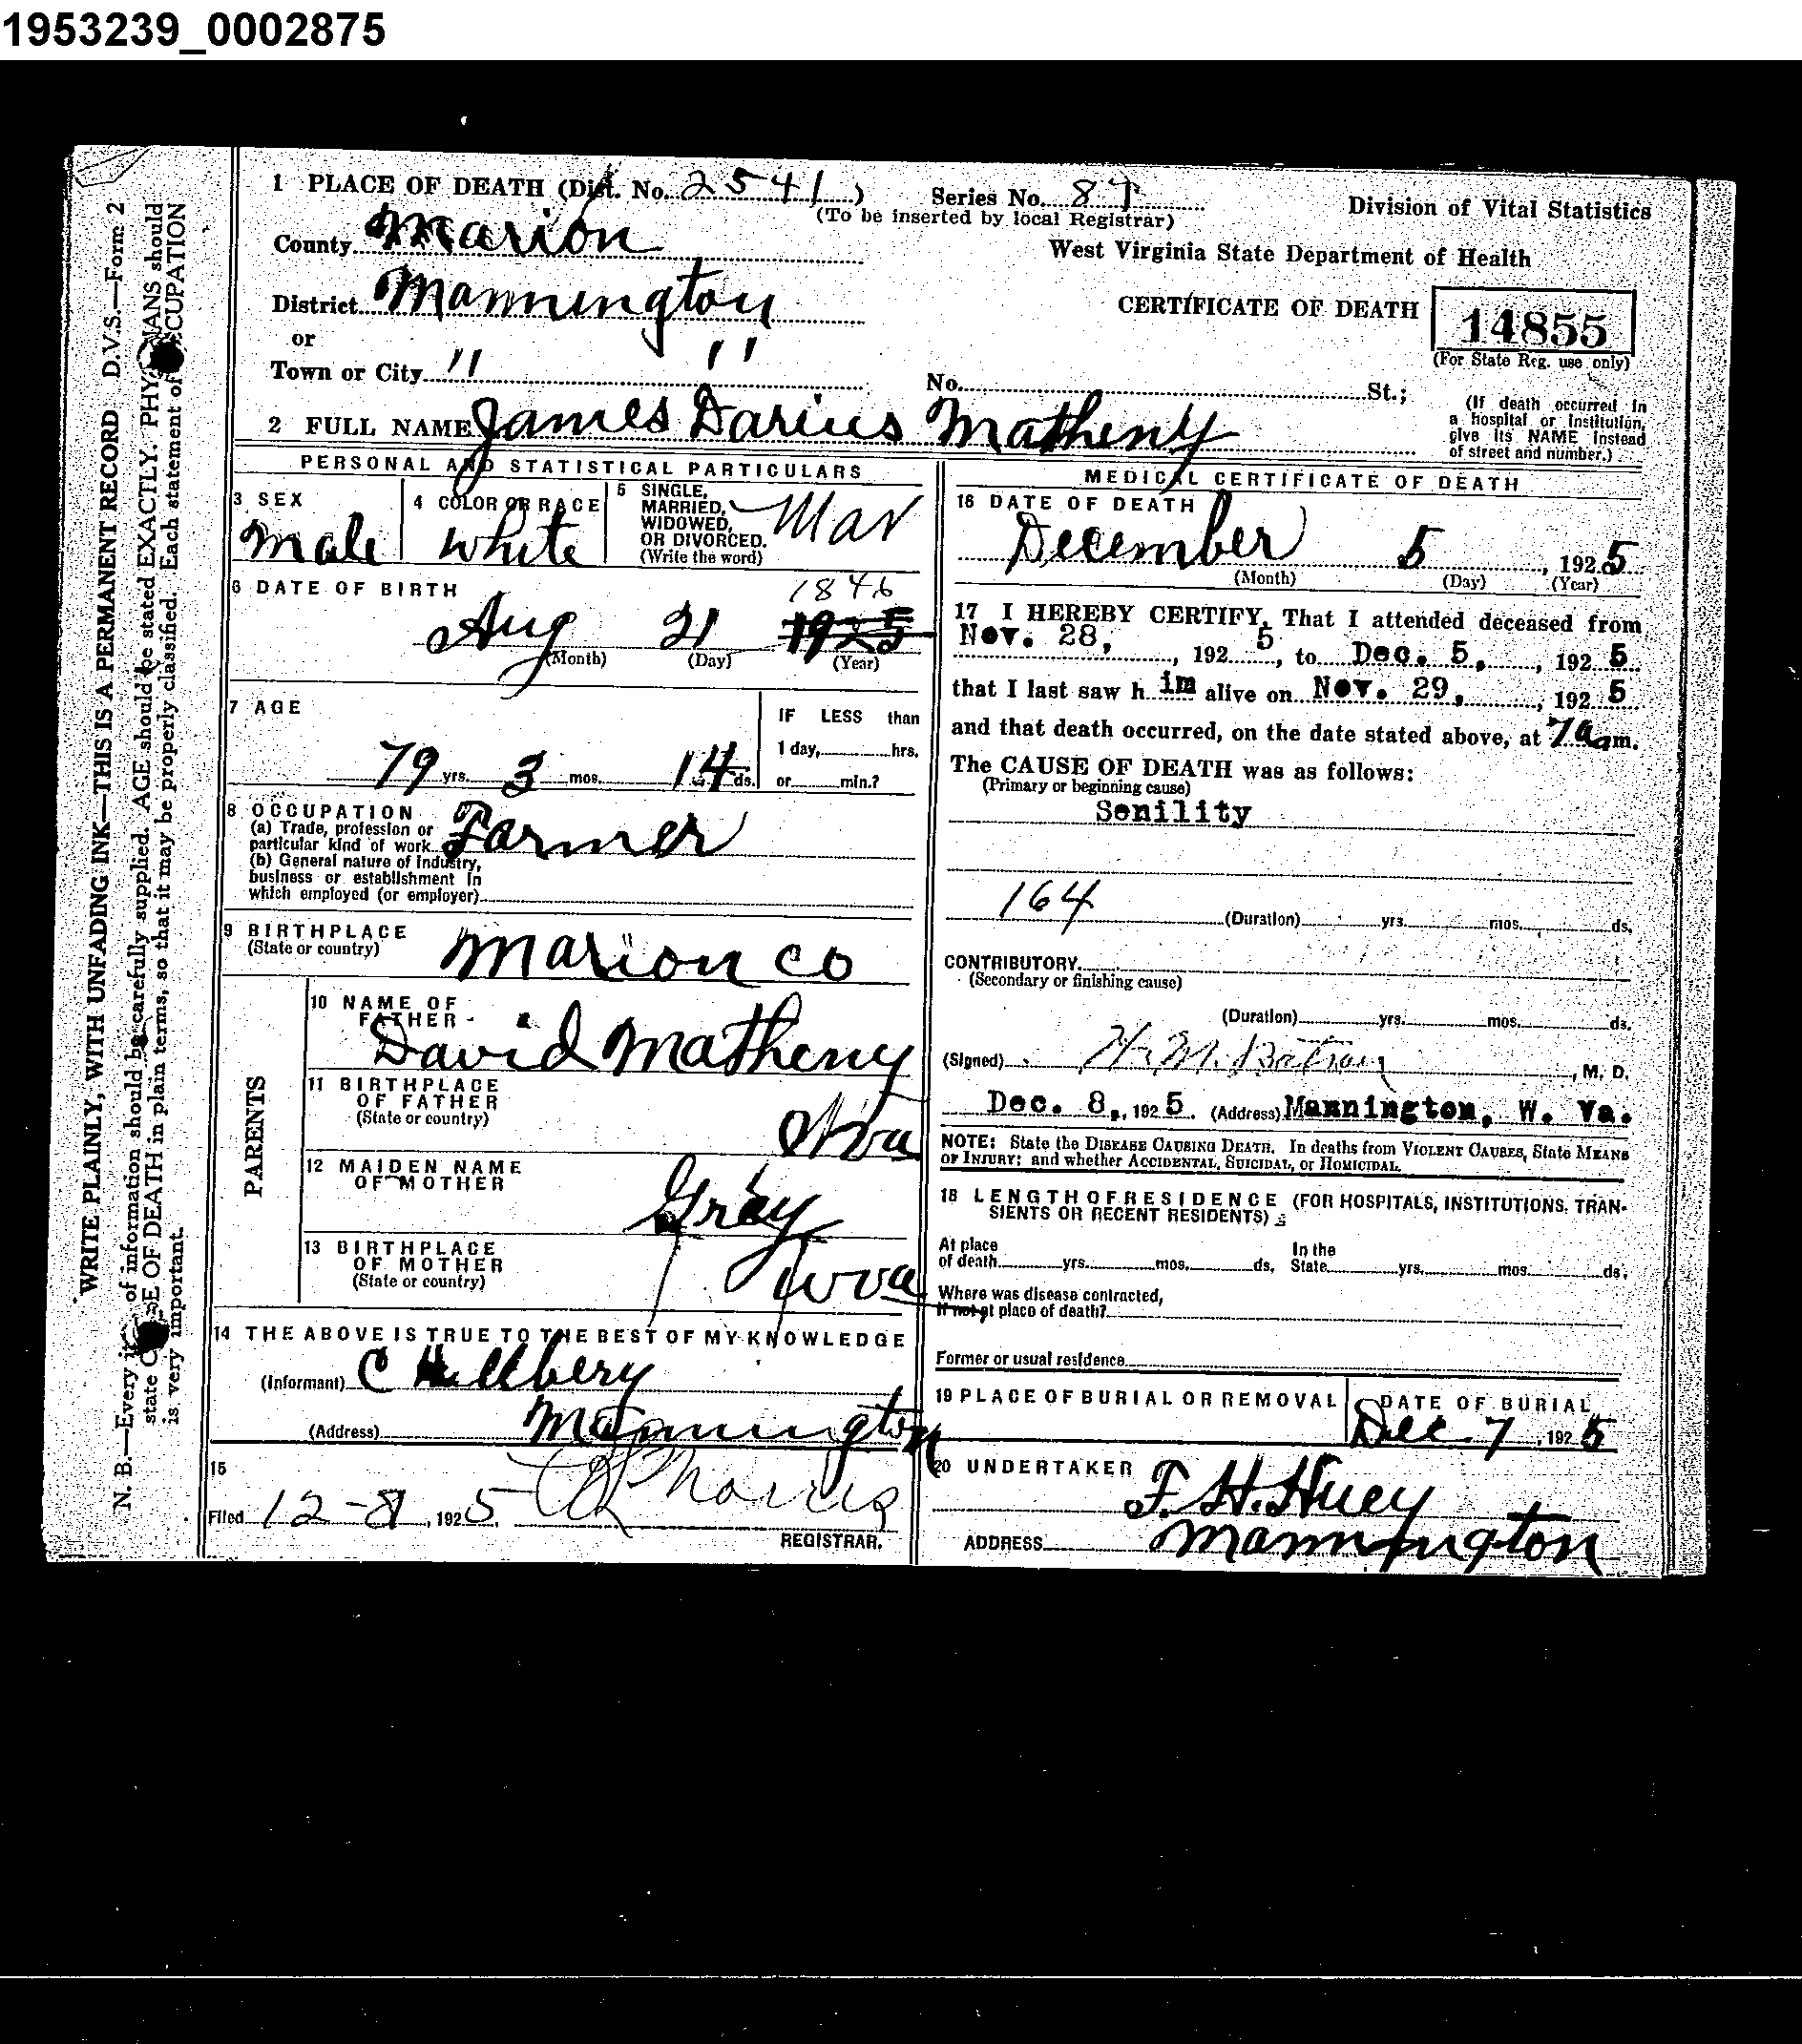 1953239_0002875
1 PLACE OF DEATH (Dist. No. 2541) Series No. 87
(To be inserted by local Registrar)
Division of Vital Statistics
County Marion
West Virginia State Department of Health
District Mannington
CERTIFICATE OF DEATH 14855
(For State Reg. use only)
or
Town or City " "
No. St.;
(If death occurred in a hospital or institution, give its NAME instead of street and number.)
2 FULL NAME James Darius Matheny
PERSONAL AND STATISTICAL PARTICULARS
3 SEX
Male
4 COLOR OR RACE
White
5 SINGLE,
MARRIED,
WIDOWED,
OR DIVORCED.
(Write the word)
Mar
6 DATE OF BIRTH
1846
Aug 21 1925
(Month) (Day) (Year)
7 AGE
79 yrs. 3 mos. 14 ds.
IF LESS than
1 day, hrs.
or min.?
8 OCCUPATION
(a) Trade, profession or
particular kind of work Farmer
(b) General nature of industry,
business or establishment in
which employed (or employer)
9 BIRTHPLACE
(State or country)
Marion Co
PARENTS
10 NAME OF
FATHER
David Matheny
11 BIRTHPLACE
OF FATHER
(State or country)
Wva
12 MAIDEN NAME
OF MOTHER
Gray
13 BIRTHPLACE
OF MOTHER
(State or country)
Wva
14 THE ABOVE IS TRUE TO THE BEST OF MY KNOWLEDGE
(Informant) C
(Address) Mannington
15
Filed 12-8, 1925, Morris
REGISTRAR.
MEDICAL CERTIFICATE OF DEATH
16 DATE OF DEATH
December 5, 1925
(Month) (Day) (Year)
17 I HEREBY CERTIFY, That I attended deceased from
Nov. 28, 1925, to Dec. 5, 1925
that I last saw him alive on Nov. 29, 1925
and that death occurred, on the date stated above, at 7 a m.
The CAUSE OF DEATH was as follows:
(Primary or beginning cause)
Senility
164 (Duration) yrs. mos. ds.
CONTRIBUTORY
(Secondary or finishing cause)
(Duration) yrs. mos. ds.
(Signed) H. M. , M. D.
Dec. 8, 1925. (Address) Mannington, W. Va.
NOTE: State the DISEASE CAUSING DEATH. In deaths from VIOLENT CAUSES, State MEANS
OF INJURY; and whether ACCIDENTAL, SUICIDAL, or HOMICIDAL.
18 LENGTH OF RESIDENCE (FOR HOSPITALS, INSTITUTIONS, TRAN-
SIENTS OR RECENT RESIDENTS)
At place
of death yrs. mos. ds.
In the
State yrs. mos. ds.
Where was disease contracted,
If not at place of death?
Former or usual residence
19 PLACE OF BURIAL OR REMOVAL
DATE OF BURIAL
Dec. 7, 1925
20 UNDERTAKER
F. H. Huey
ADDRESS Mannington
WRITE PLAINLY, WITH UNFADING INK—THIS IS A PERMANENT RECORD D.V.S.—Form 2
N. B.—Every of information should be carefully supplied. AGE should be stated EXACTLY. PHY ANS should
state C E OF DEATH in plain terms, so that it may be properly classified. Each statement of CUPATION
is very important.